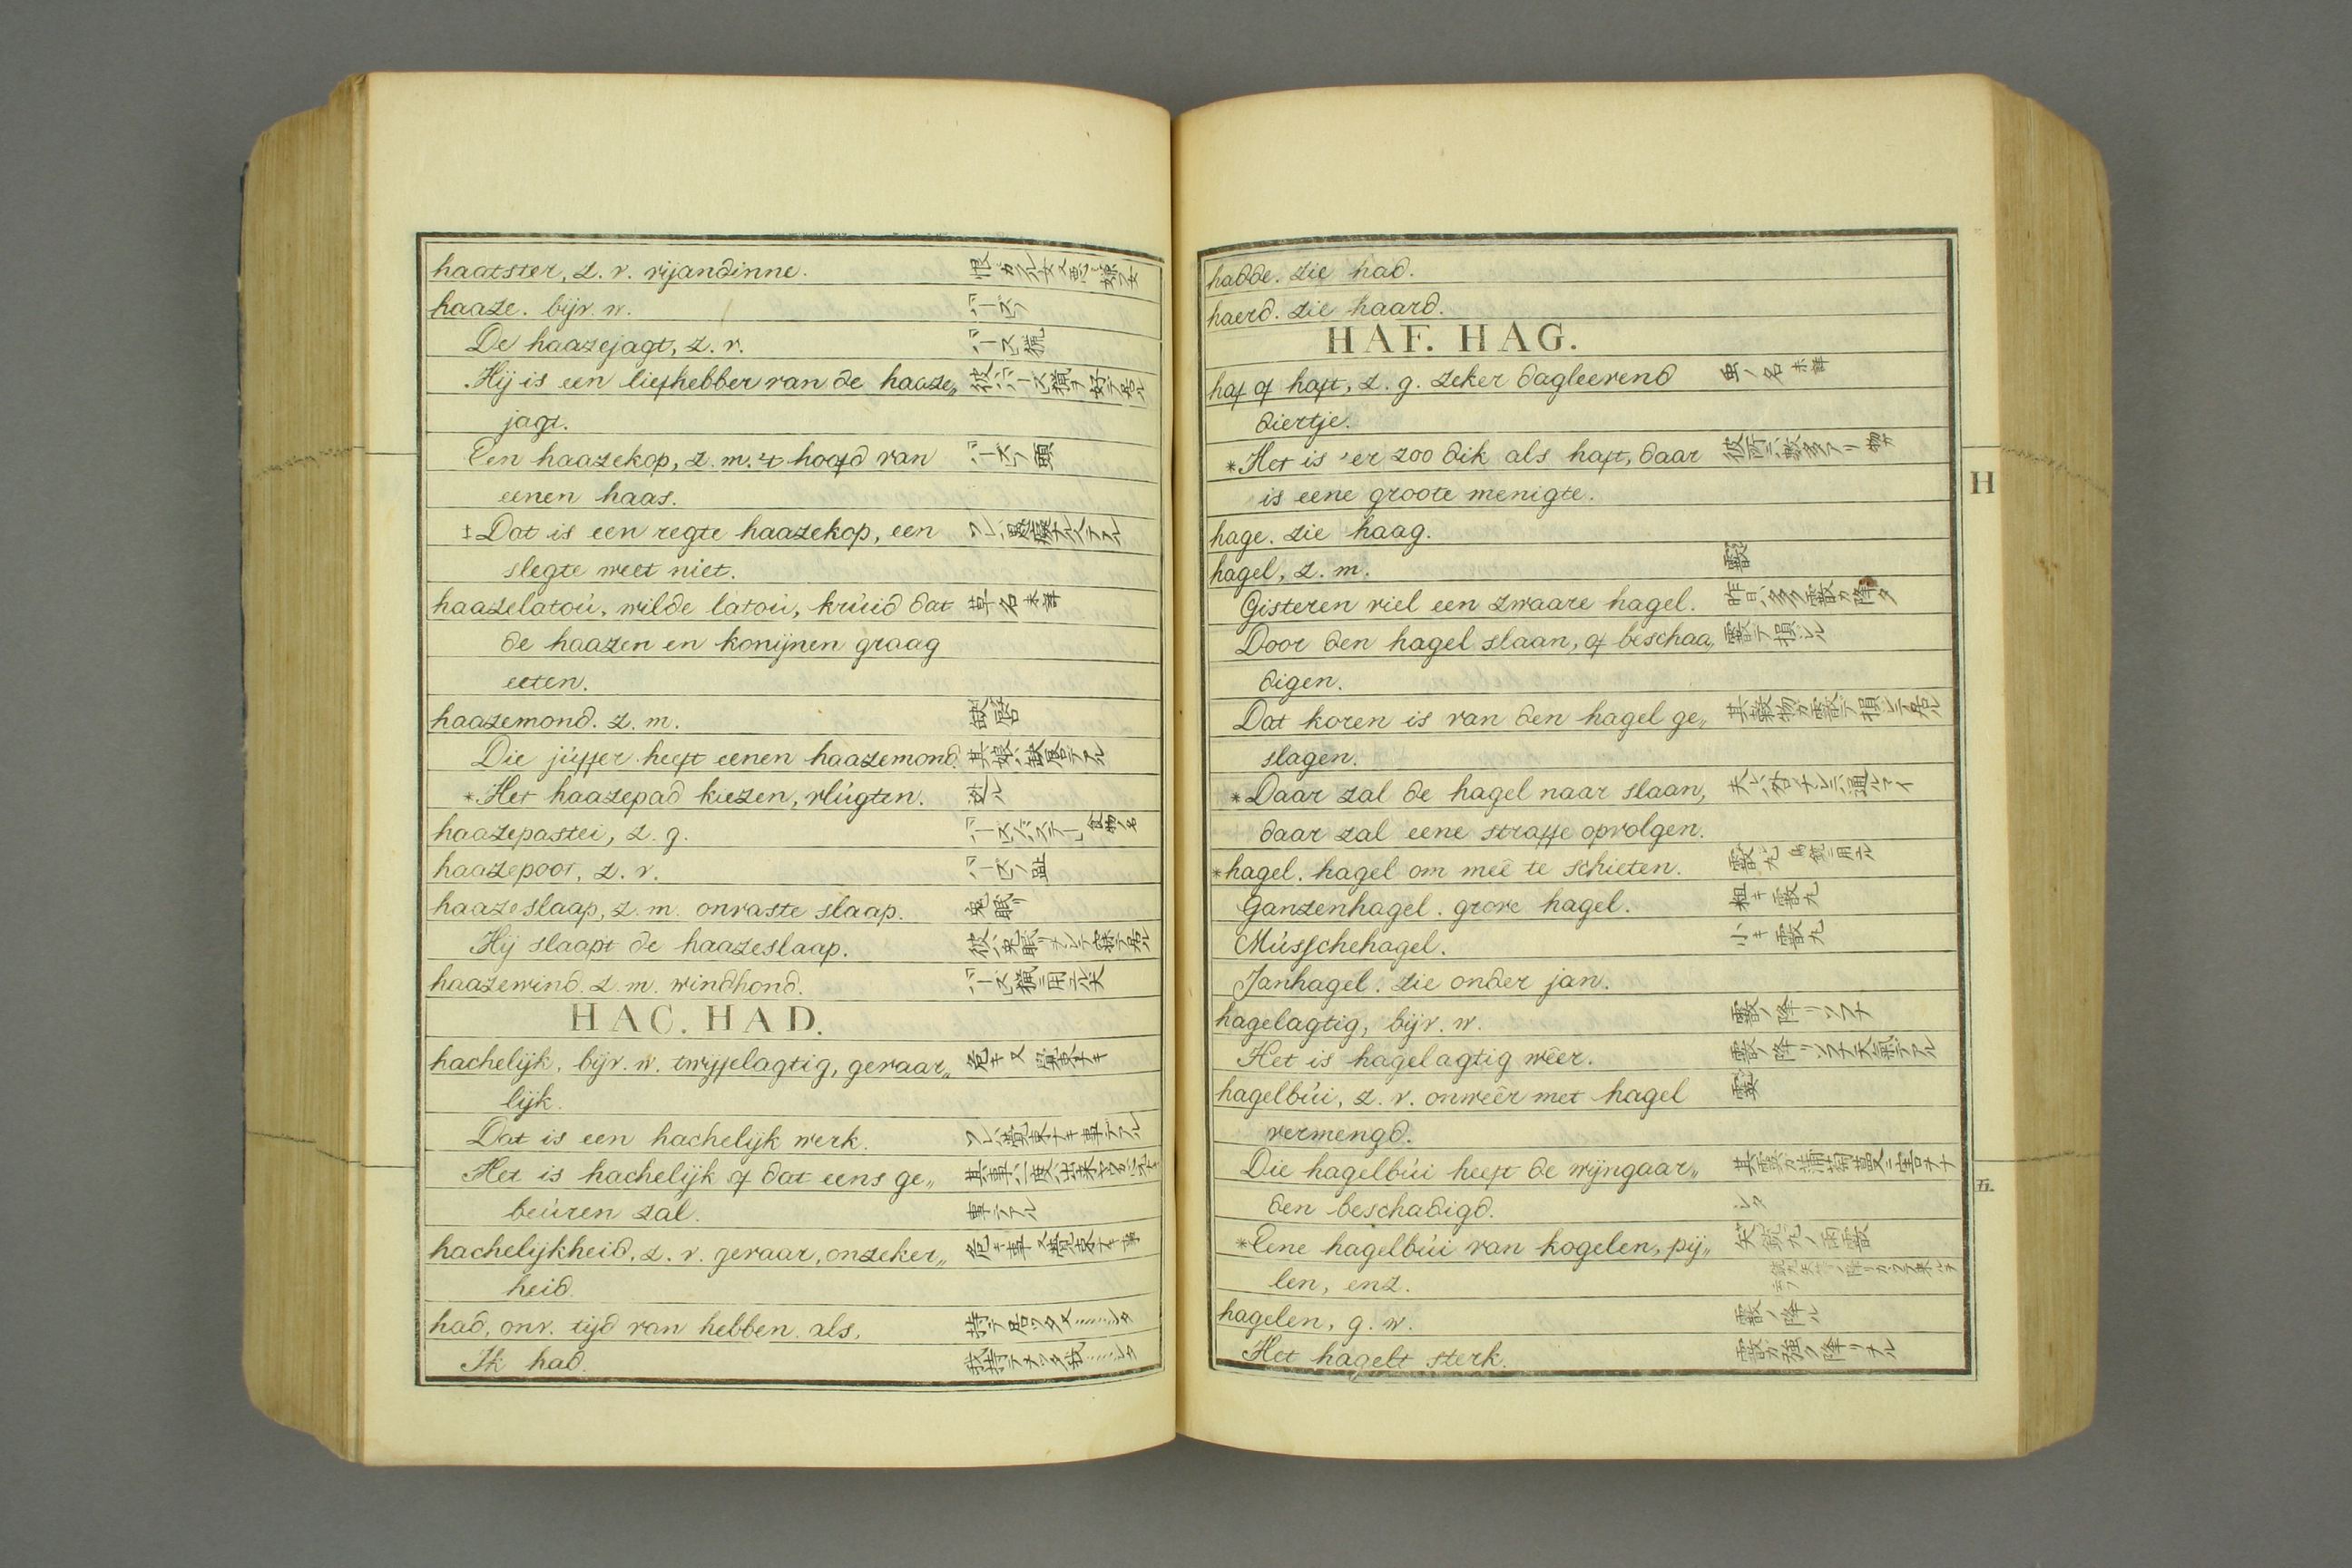 haatster, z. v. vijandinne. 恨ガル女又悪ミ嫌フ女
haaze. bijv. w. ハーズノ
De haazejagt, z. v. ハーズ猟
Hij is een liefhebber van de haaze„ 彼ハハーズ猟ヲ好テ居ル
jagt.
Een haazekop, z. m. 't hoofd van ハーズノ頭
eenen haas.
‡Dat is een regte haazekop, een
slegte weet niet.
haazelatoú, wilde latoú, krúid dat 草名未詳
de haazen en konijnen graag
eeten.
haazemond. z. m. 缺唇
Die júffer heeft eenen haazemond. 其娘ハ缺唇デアル
*Het haazepad kiezen, vlúgten. 迯ル
haazepastei, z. g. ハーズパステレイ食物ノ名
haazepoot, z. v. ハーズノ趾
haazeslaap, z. m. onvaste slaap. 兎眠リ
Hij slaapt de haazeslaap. 彼ハ兎眠リヲシテ寐テ居ル
haazewind. z. m. windhond. ハーズ猟ニ用ル犬
HAC. HAD.
hachelijk, bijv. w. twyffelagtig, gevaar„ 危キ又覚束ナキ
lijk.
Dat is een hachelijk werk. ソレハ覚束ナキ事デアル
Het is hachelijk of dat eens ge„
beúren zal. 事デアル
hachelijkheid, z. v. gevaar, onzeker„ 危キ事又覚束ナキ事
heid.
had, onv. tijd van hebben. als, 持テ居ツタ又……シタ
Ik had. 我持テオツタ我……シタ
hadde. zie had.
haerd. zie haard.
HAF. HAG.
haf of haft, z. g. zeker dagleevend 虫ノ名未詳
diertje.
*Het is 'er zoo dik als haft, daar 彼所ニハ数多アリ
is eene groote menigte.
hage. zie haag.
hagel, z. m. 霰
Gisteren viel een zwaare hagel. 昨日ハ多ク霰ガ降タ
Door den hagel slaan, of beschaa„ 霰デ損シル
digen.
Dat koren is van den hagel ge„ 其穀物ガ霰デ損シテ居ル
slagen.
*Daar zal de hagel naar slaan,
daar zal eene straffe opvolgen.
*hagel. hagel om meê te schieten. 霰丸鳥銃ニ用ル
Ganzenhagel. grove hagel. 粗キ霰丸
Músschehagel. 小キ霰丸
Janhagel. zie onder jan.
hagelagtig, bijv. w. 霰ノ降リソフナ
Het is hagelagtig wêer. 霰ノ降リソフナ天氣デアル
hagelbúi, z. v. onwêêr met hagel
vermengd.
Die hagelbúi heeft de wijngaar„
den beschadigd. シタ
*Eene hagelbúi van kogelen, pij„ 矢鉄丸ノ雨霰
len, enz.
hagelen, g. w. 霰ノ降ル
Het hagelt sterk. 霰ガ強ク降リオル
H
五